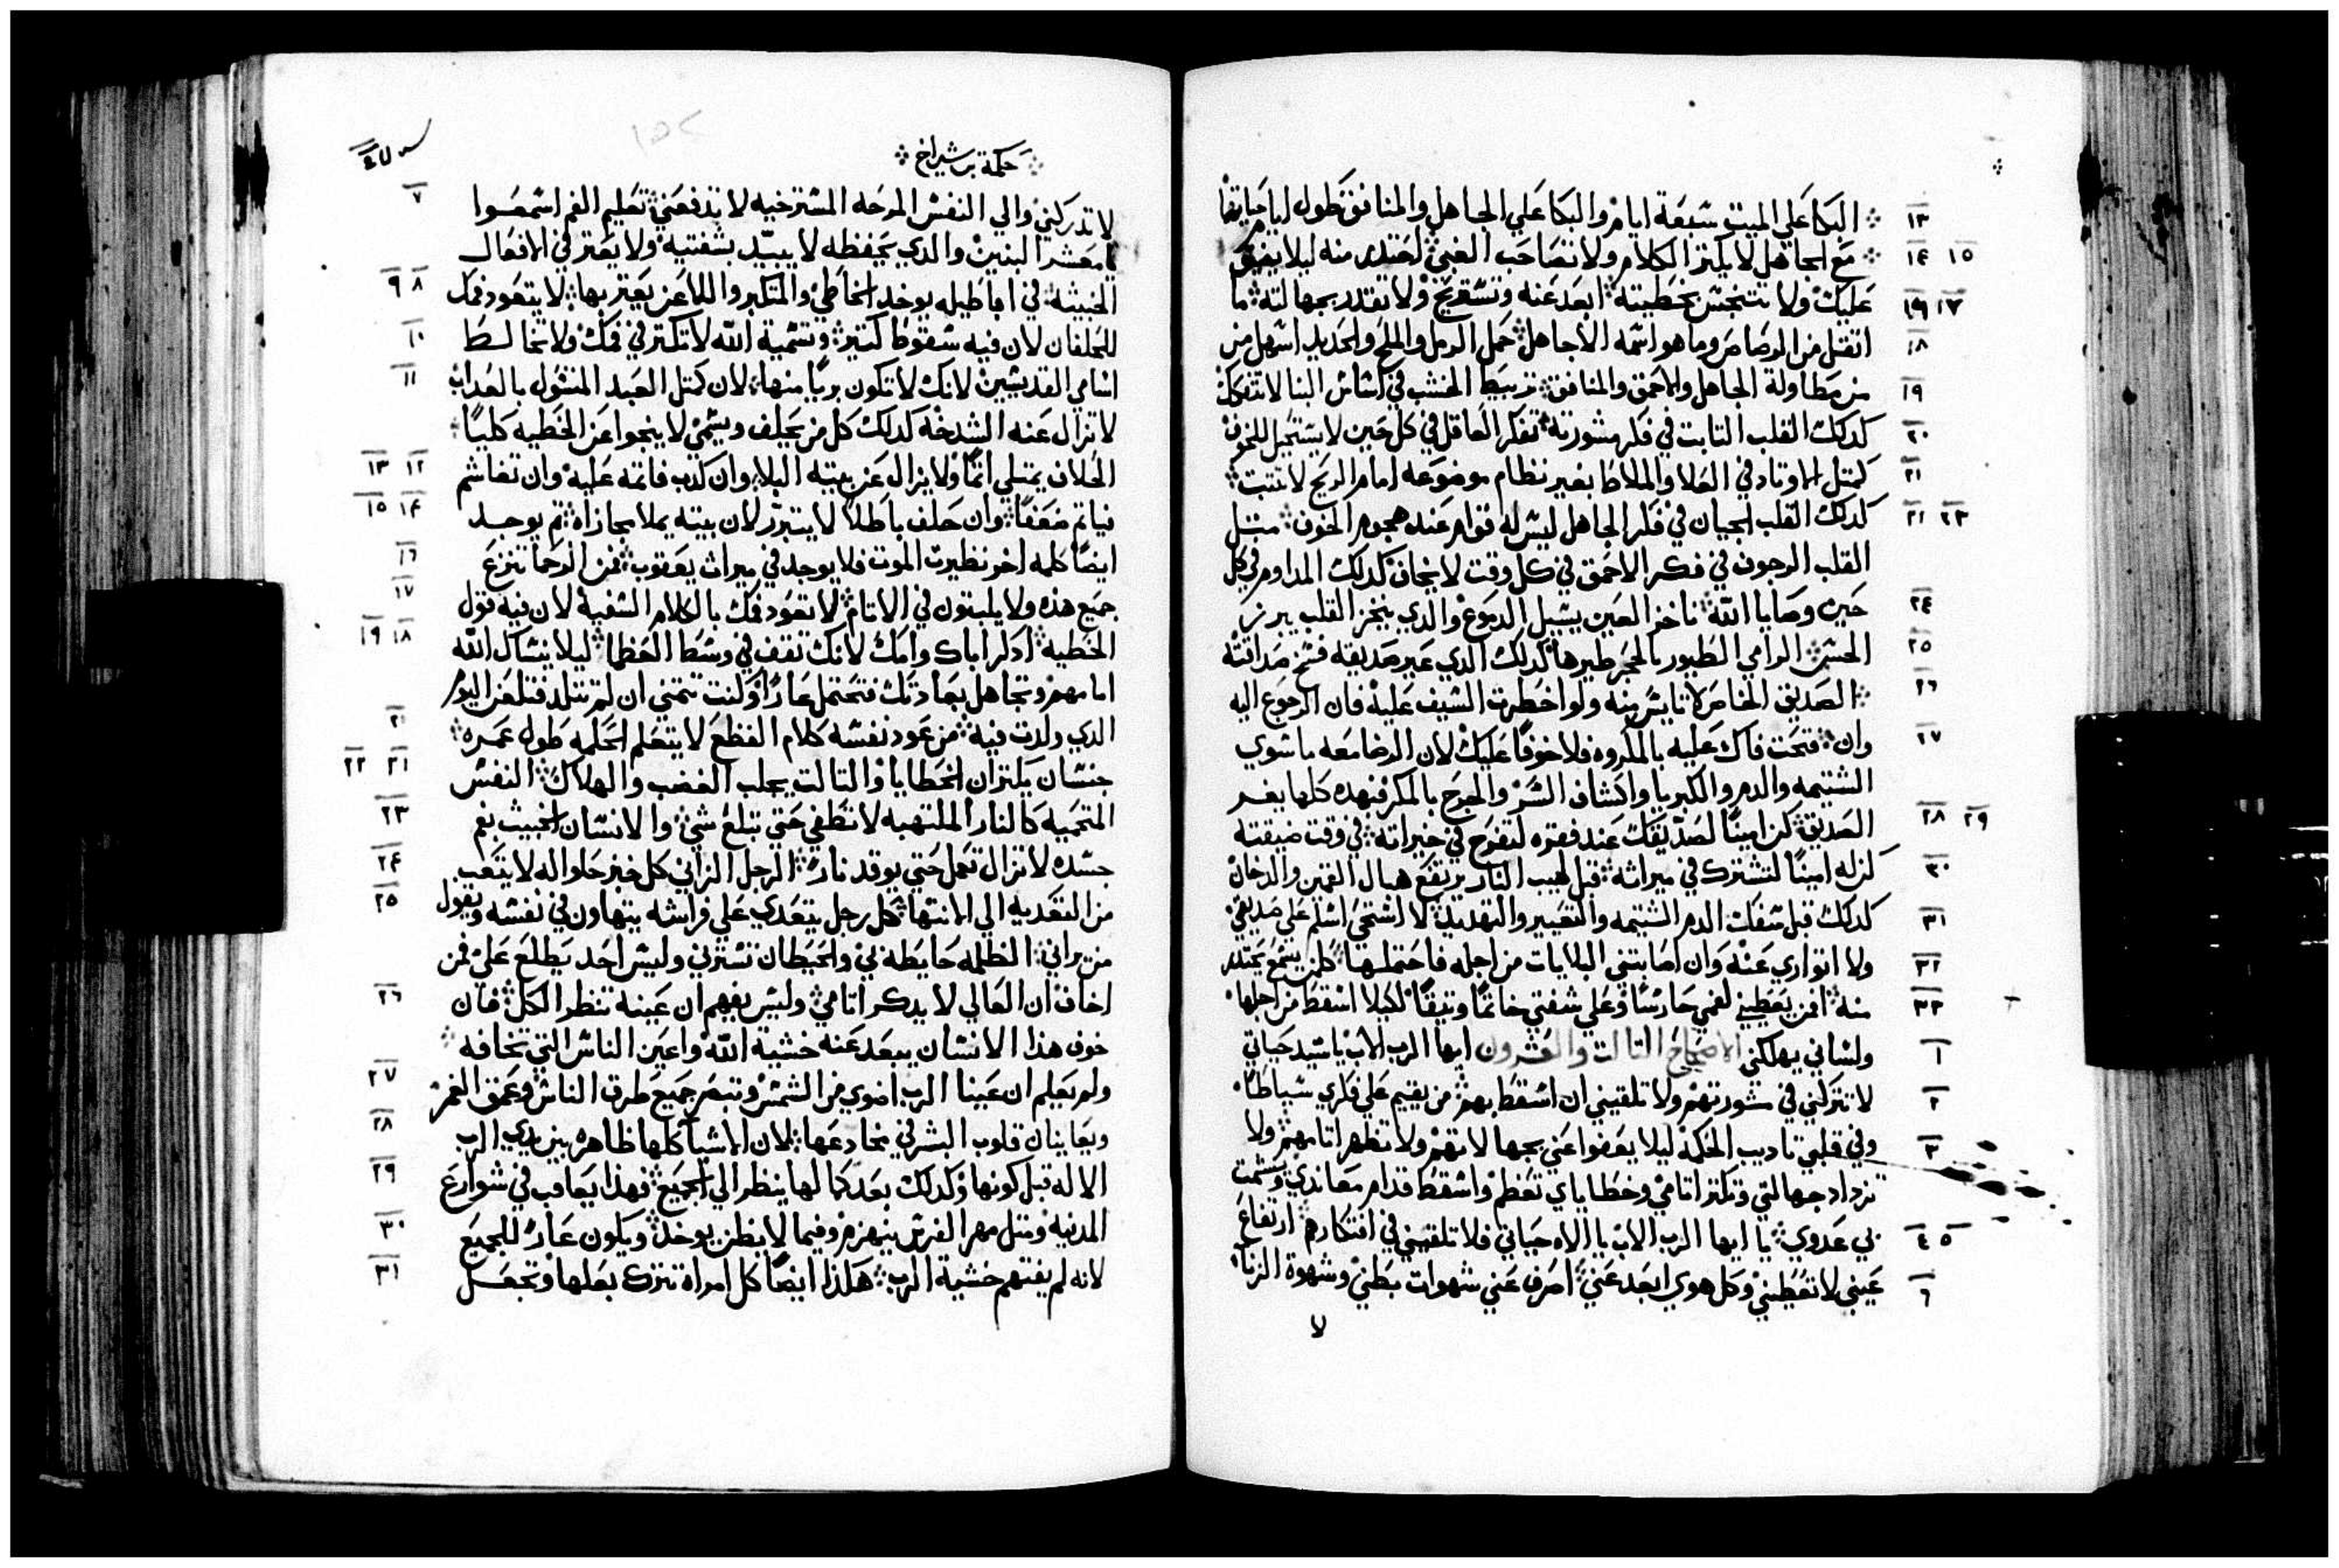 البكا علي الميت سبعة ايام والبكا علي الجاهل والمنافق طول ايام حياتها
١٣
مع الجاهل لا تكتر الكلام ولا تصاحب الغبي احتدر منه ليلا يفيق
١٤ ١٥
عليك ولا تتنجس بخطيته ابعد عنه وتستريح ولا تقتدر بجهالته ما
١٦ ١٧
اتقل من الرصاص وما هو اسمه الا جاهل حمل الرمل والملح والحديد اسهل من
١٨
من مطاولة الجاهل والاحمق والمنافق تربيط الخشب في اساس البنا لا تتفكك
١٩
كدلك القلب التابت في فكر مشورته تفكر العاقل في كل حين لا يستحيل للخوف
٢٠
كمتل الاوتاد في العلا والملاط بغير نظام موضوعه امام الريح لا تتبت
٢١
كدلك القلب الجبان في فكر الجاهل ليس له قوام عند هجوم الخوف متل
٢٢ ٢٣
القلب الرجوف في فكر الاحمق في كل وقت لا يخاف كدلك المداوم في كل
حين وصايا الله ناخز العين يسيل الدموع والدي ينخز القلب يبرز
٢٤
الحس الرامي الطيور بالحجر طيرها كدلك الدي عير صديقه فسخ صداقته
٢٥
الصديق الخاص لا تايس منه ولو اخطرت السيف عليه فان الرجوع اليه
٢٦
وان فتحت فاك عليه بالمكروه فلا خوفا عليك لان الرضا معه ما سوي
٢٧
الشتيمه والدم والكبريا واكشاف السر والجرح بالمكر فهده كلها يفر
الصديق كن امينا لصديقك عند فقره لتفرح في خيراته في وقت ضيقته
٢٨ ٢٩
كن له امينا لتشترك في ميراته قبل لهيب النار يرتفع هبال القمين والدخان
٣٠
كدلك قبل سفك الدم الشتيمه والتعيير والتهديد لا استحي اسلم علي صديقي
٣١
ولا اتواري عنه وان اصابتني البلايات من اجله فاحتملها كلمن يسمع يحتدر
٣٢
منه افمن يعطيني لفمي حارسا وعلي شفتي خاتما وتيقا لكيلا اسقط من اجلها
٣٣
ولساني يهلكني الاصحاح التالت والعشرون ايها الرب الاب يا سيد حياتي
١
لا تتركني في مشورتهم ولا تلقيني ان اسقط بهم من يقيم علي فكري سياطا
٢
وفي قلبي تاديب الحكمه ليلا يعفوا عني بجهالاتهم ولا تظهر اتامهم ولا
٣
تزداد جهالتي وتكتر اتامي وخطاياي تعظم واسقط قدام معاندي وتشمت
بي عدوي يا ايها الرب الاب يا الاه حياتي فلا تلقيني في افتكارهم ارتفاع
٤ ٥
عيني لا تعطيني وكل هوي ابعد عني اصرف عني شهوات بطني وشهوة الزنا
٦
لا
حكمة بر شيراخ
لا تدركني والي النفس المرخه المسترخيه لا تدفعني تعليم الفم اسمعوا
٧
يا معشر البنين والدي يحفظه لا يبيد بشفتيه ولا يعتر في الافعال
الخبيته في اباطيله يوخد الخاطي والمتكبر واللاعن يعتر بها لا يتعود فمك
٨ ٩
للحلفان لان فيه سقوط كتير وتسمية الله لا تكتر في فمك ولا تخالط
١٠
اسامي القديسين لانك لا تكون بريا منها لان كمتل العبد المسول بالعداب
١١
لا تزال عنه الشدخه كدلك كل من يحلف ويسمي لا ينجوا عن الخطيه كليا
الحلاف يمتلي اتما ولا يزال عن بيته البلا وان كدب فاتمه عليه وان تغاشم
١٢ ١٣
فياتم ضعفا وان حلف باطلا لا يتبرر لان بيته يملا مجازاه تم يوجد
١٤ ١٥
ايضا كلمه اخر نظيرت الموت فلا يوجد في ميرات يعقوب فمن الرحما تنزع
١٦
جميع هده ولا يلبتون في الاتام لا تعود فمك بالكلام السفيه لان فيه قول
١٧
الخطيه ادكر اباك وامك لانك تقف في وسط العظما ليلا ينساك الله
١٨ ١٩
امامهم وتجاهل بعادتك فتحتمل عارا وكنت تتمني ان لم تتلد فتلعن اليوم
الدي ولدت فيه من عود نفسه كلام الفظع لا يتعلم الحكمه طول عمره
٢٠
جنسان يكتران الخطايا والتالت يجلب الغضب والهلاك النفس
٢١ ٢٢
المتحميه كالنار الملتهبه لا تطفي حتي تبلع شي والانسان الخبيت بفم
٢٣
جسده لا تزال تعمل حتي يوقد نار الرجل الزاني كل خبز حلوا له لا يتعب
٢٤
من التعديه الي الانتها كل رجل يتعدي علي فراشه يتهاون في نفسه ويقول
٢٥
من يراني الظلمه حايطه بي والحيطان تسترني وليس احد يطلع علي فمن
اخاف ان العالي لا يدكر اتامي وليس يفهم ان عينه تنظر الكل فان
٢٦
خوف هذا الانسان يبعد عنه خشية الله واعين الناس التي تخافه
ولم يعلم ان عينا الرب اضوي من الشمس وتبصر جميع طرق الناس وعمق الغمر
٢٧
ويعاينان قلوب البشر في مخادعها لان الاشيا كلها ظاهره بين يدي الرب
٢٨
الاله قبل كونها وكدلك بعد كمالها ينظر الي الجميع فهذا يعاقب في شوارع
٢٩
المدنيه ومتل مهر الفرس ينهزم وفيما لا يظن يوخد ويكون عار للجميع
٣٠
لانه لم يفتهم خشية الرب هكذا ايضا كل امراه تترك بعلها وتجعل
٣١